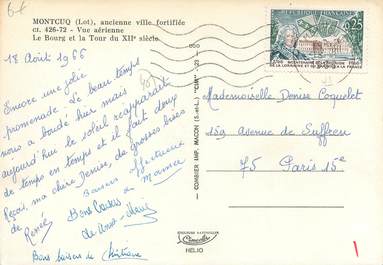 MONTCUQ (Lot), ancienne ville fortifiée
ct. 426-72 - Vue aérienne
Le Bourg et la Tour du XIIe siècle
18 Août 1966
Encore une jolie
promenade. Le beau temps
nous a boudé hier mais
aujourd'hui le soleil réapparaît
de temps en temps et il fait doux
Reçois, ma chère Denise, de grosses bises
de Renée
Baisers affectueux
de Mamie
Bons baisers
de
Bons baisers de Christiane
COMBIER IMP. MACON (S.-et-L.) "CIM"
REPUBLIQUE FRANCAISE
0,25
1766 BICENTENAIRE DE LA REUNION 1966
DE LA LORRAINE ET DE BARROIS A LA FRANCE
Mademoiselle Denise Coquelet
159 avenue de Suffren
75 Paris 15e
Combier
HELIO